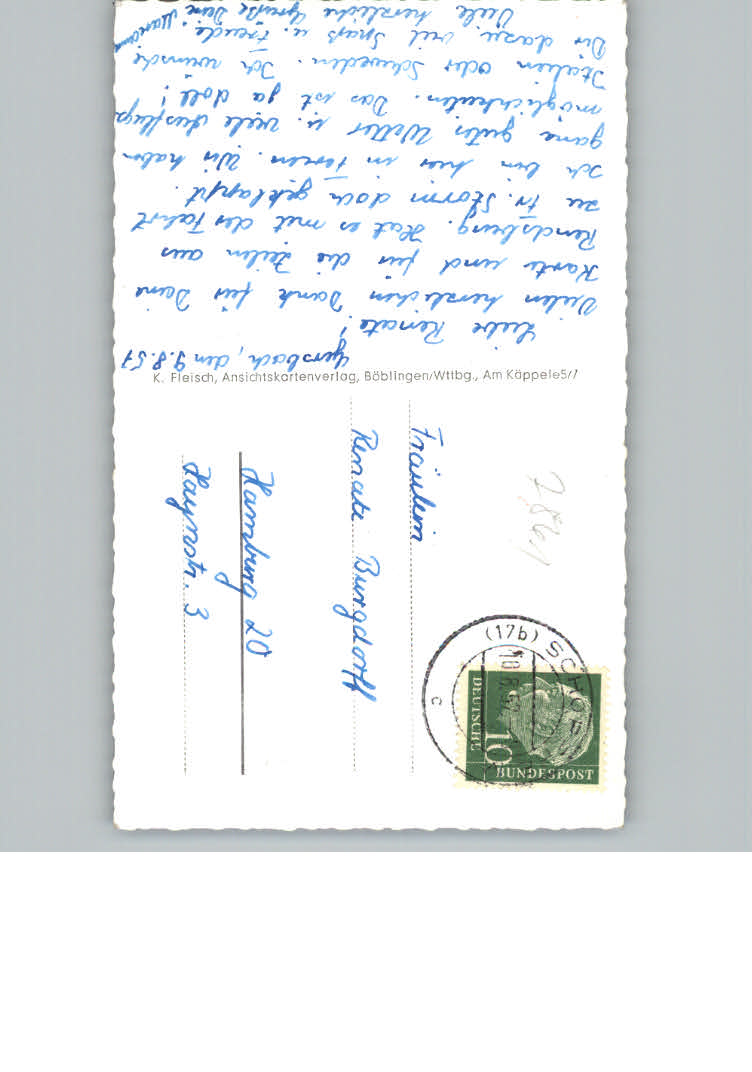 Gersbach, den 9.8.57
Liebe Renate!
Vielen herzlichen Dank für Deine
Karte und für die Zeilen aus
Rendsburg. Hat es mit der Fahrt
zu Fr. Storm doch geklappt.
Ich bin hier in Ferien. Wir haben
ganz gutes Wetter u. viele Ausflugs
möglichkeiten. Das ist ja doll!
Italien oder Schweden. Ich wünsche
Dir dazu viel Spaß u. Freude.
Viele herzliche Grüße Deine
K. Fleisch, Ansichtskartenverlag, Böblingen/Wttbg., Am Käppele5/7
Fräulein
Renate Burgdorff
Hamburg 20
Haynstr. 3
(17b) SCHOPF
10.8.57
c
DEUTSCHE
10
BUNDESPOST